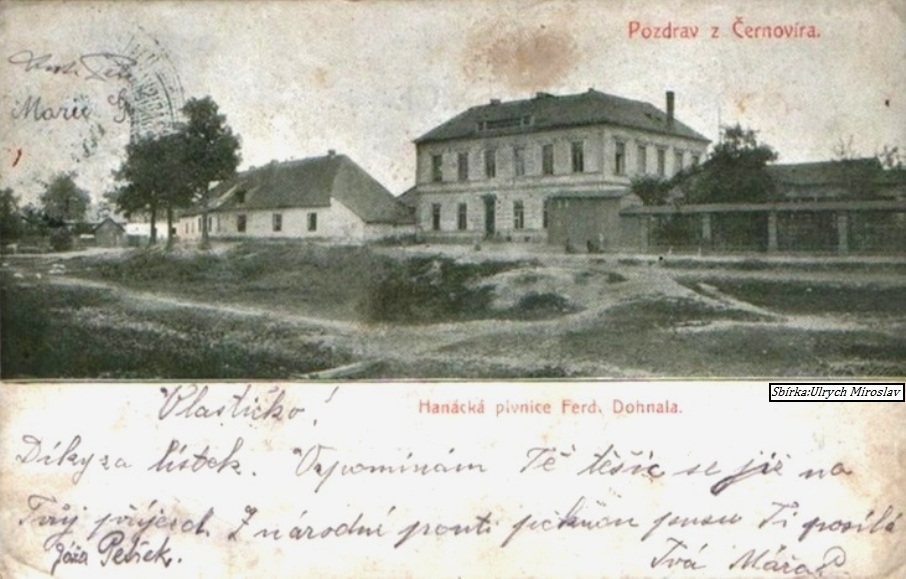 Pozdrav z Černovíra.
Marie
Sbírka:Ulrych Miroslav
Hanácká pivnice Ferd. Dohnala.
Vlastičko!
Díky za lístek. Vzpomínám Tě těšíc se již na
Tvůj příjezd. Z národní pouti pěknou pusu Ti posílá
Jóža Pešek.
Tvá Máňa